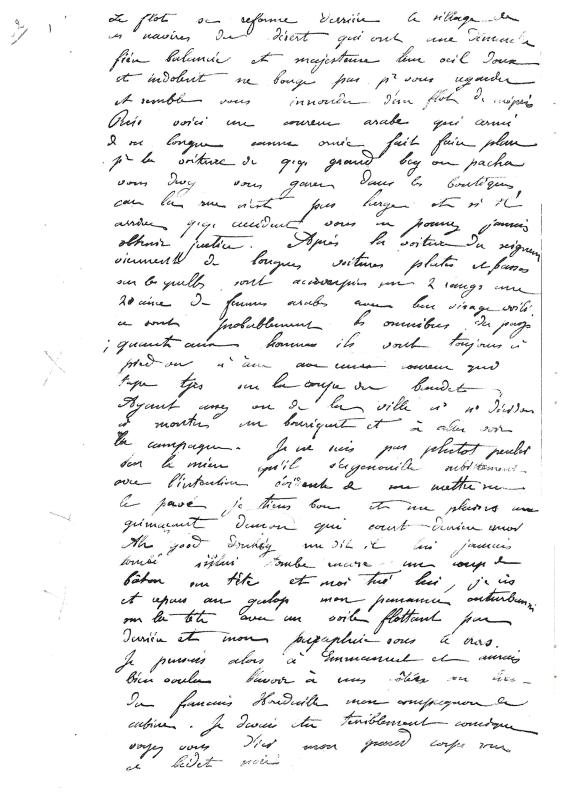 Le flot se reforme derrière le sillage de
ces navires du désert qui ont une démarche
fière balancée et majestueuse leur oeil doux
et indolent ne bouge pas pr vous regarder
et semble vous innonder d'un flot de mépris
Puis voici un coureur arabe qui armé
d'une longue canne ornée fait faire place
pr la voiture de qq grand bey ou pacha
vous devez vous garer dans les boutiques
car la rue n'est pas large et si il
arrive qq accident vous ne pourrez jamais
obtenir justice. Après la voiture du seigneur
viennent de longues voitures plates et basses
sur lesquelles sont accroupies sur 2 rangs une
20aine de femmes arabes avec leur visage voilé
ce sont probablement les omnibus du pays
; quant aux hommes ils vont toujours à
pied ou à âne avec un coureur qui
tape tjrs sur la croupe du baudet
Ayant assez vu de la ville je me décide
à monter un bourriquet et à aller voir
la campagne. Je ne suis pas plutôt
sur le mien qu'il s'agenouille subitement
avec l'intention évidente de me mettre sur
le pavé je tiens bon et me plains au
grimaçant démon qui court derrière moi
Ah good donkey me dit il lui jamais
tombé si lui tombe encore un coup de
bâton sur tête et moi tué lui, je ris
et repars au galop mon panama
sur la tête avec un voile flottant par
derrière et mon parapluie sous le bras.
Je pensais alors à Emmanuel et aurais
bien voulu l'avoir à mes côtés au lieu
du français mon compagnon de
cabine. Je devais être terriblement comique
voyez vous d'ici mon grand corps sur
ce bidet noir